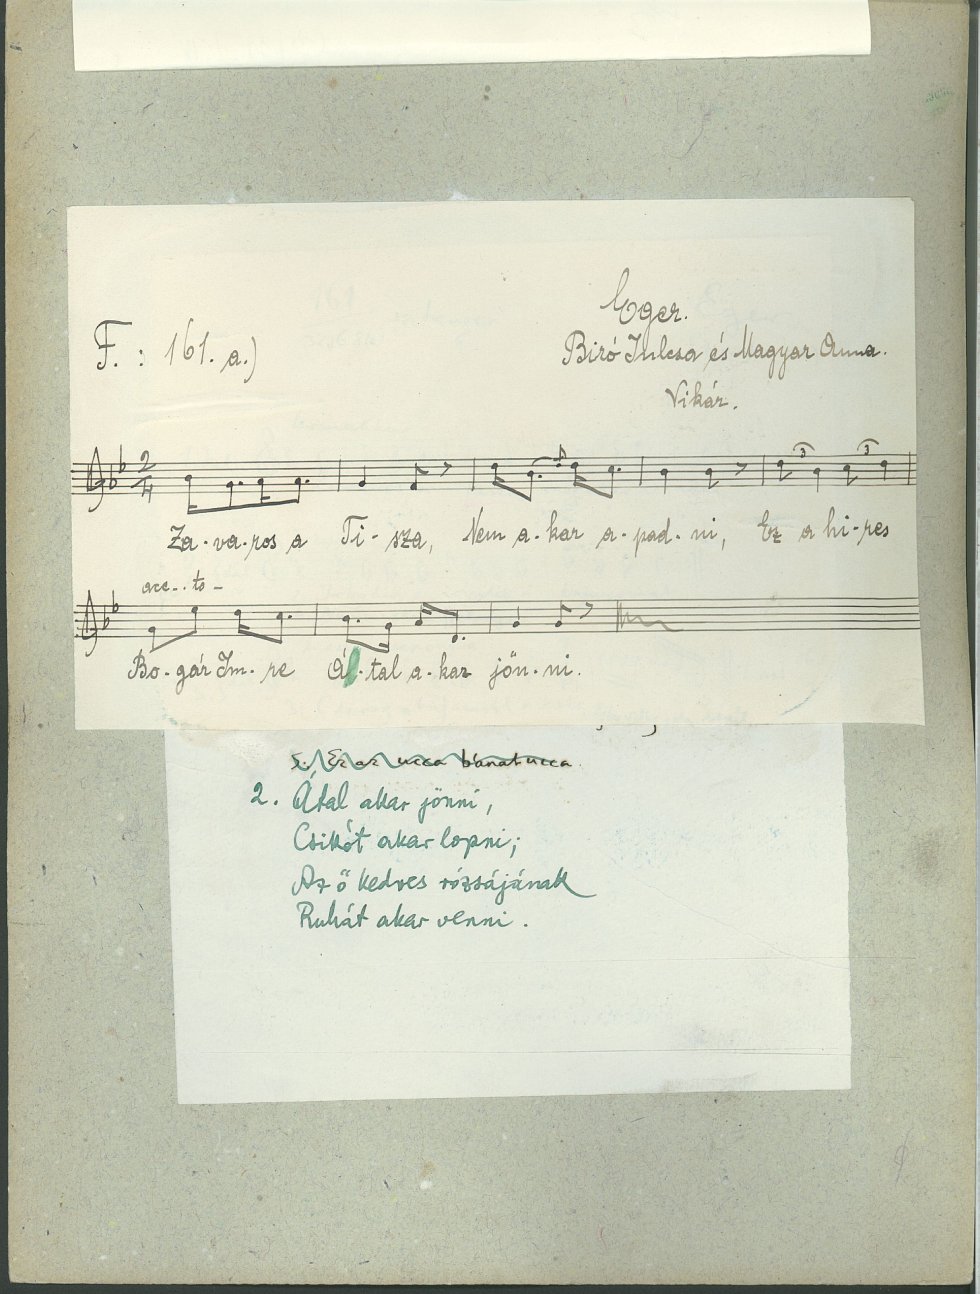 Eger.
F.: 161. a.)
Biró Julcsa és Magyar Anna.
Vikár.
2/4
3 3
Za-va-ros a Ti-sza, Nem a-kar a-pad-ni, Ez a hi-res
acc...to
Bo-gár Im-re Á-tal a-kar jön-ni.
5. Ez az ucca bánat ucca
2. Átal akar jönni,
Csikót akar lopni;
Az ő kedves rózsájának
Ruhát akar venni.